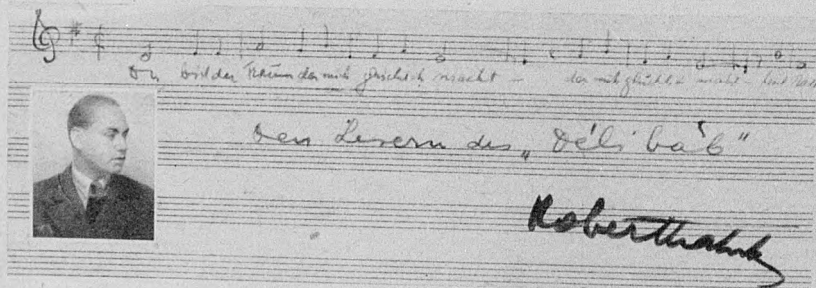 Du bist der Traum der mich glücklich macht – der mich glücklich macht –
Den Lesern des „Délibáb"
Robert